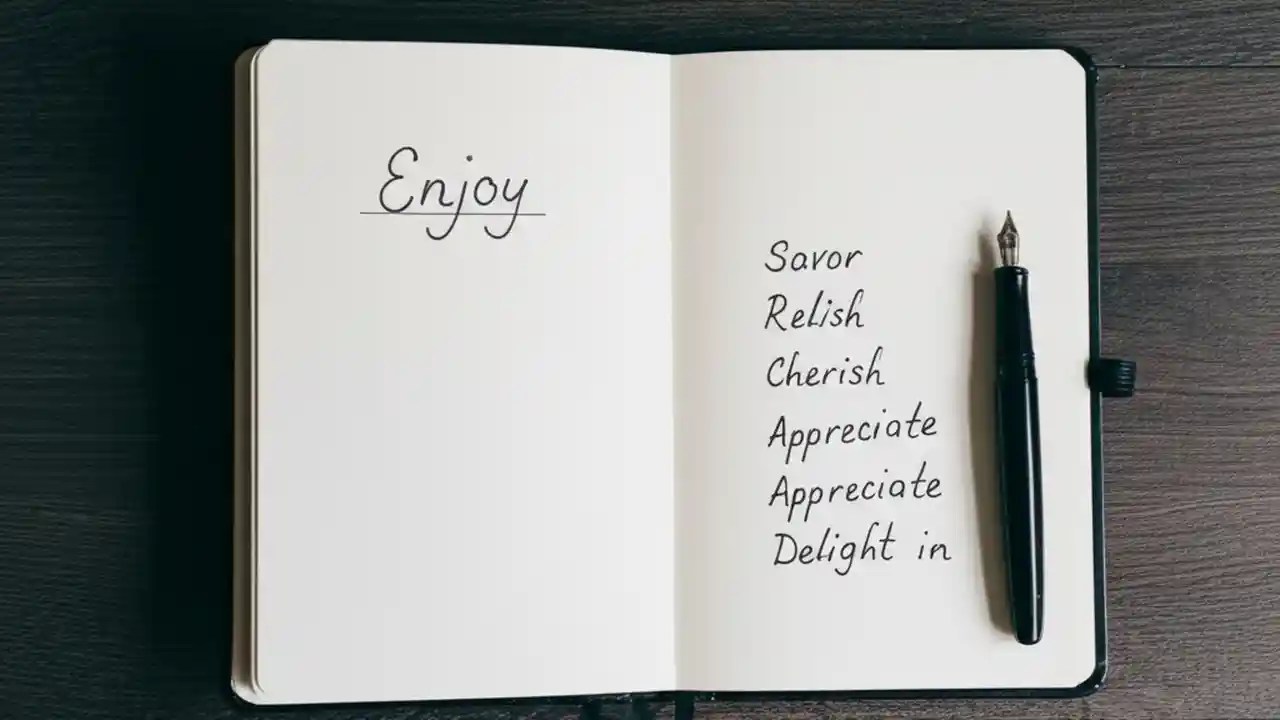 Enjoy
Savor
Relish
Cherish
Appreciate
Appreciate
Delight in